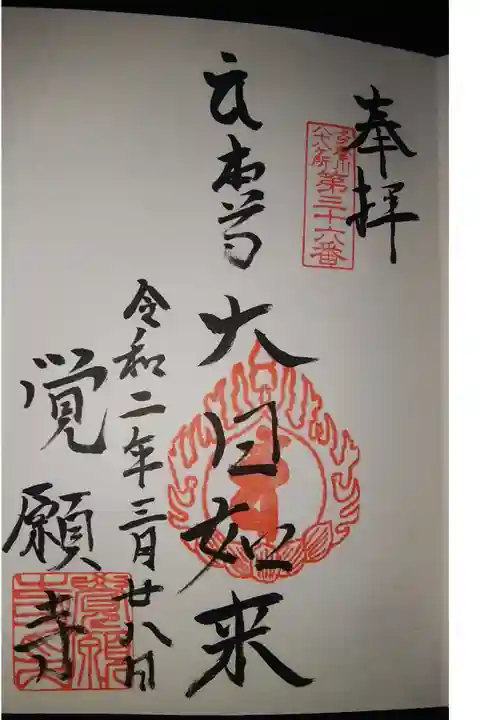 奉拝
八十八ヶ所
第三十六番
本尊
大日如来
令和二年三月廿八日
覚願寺